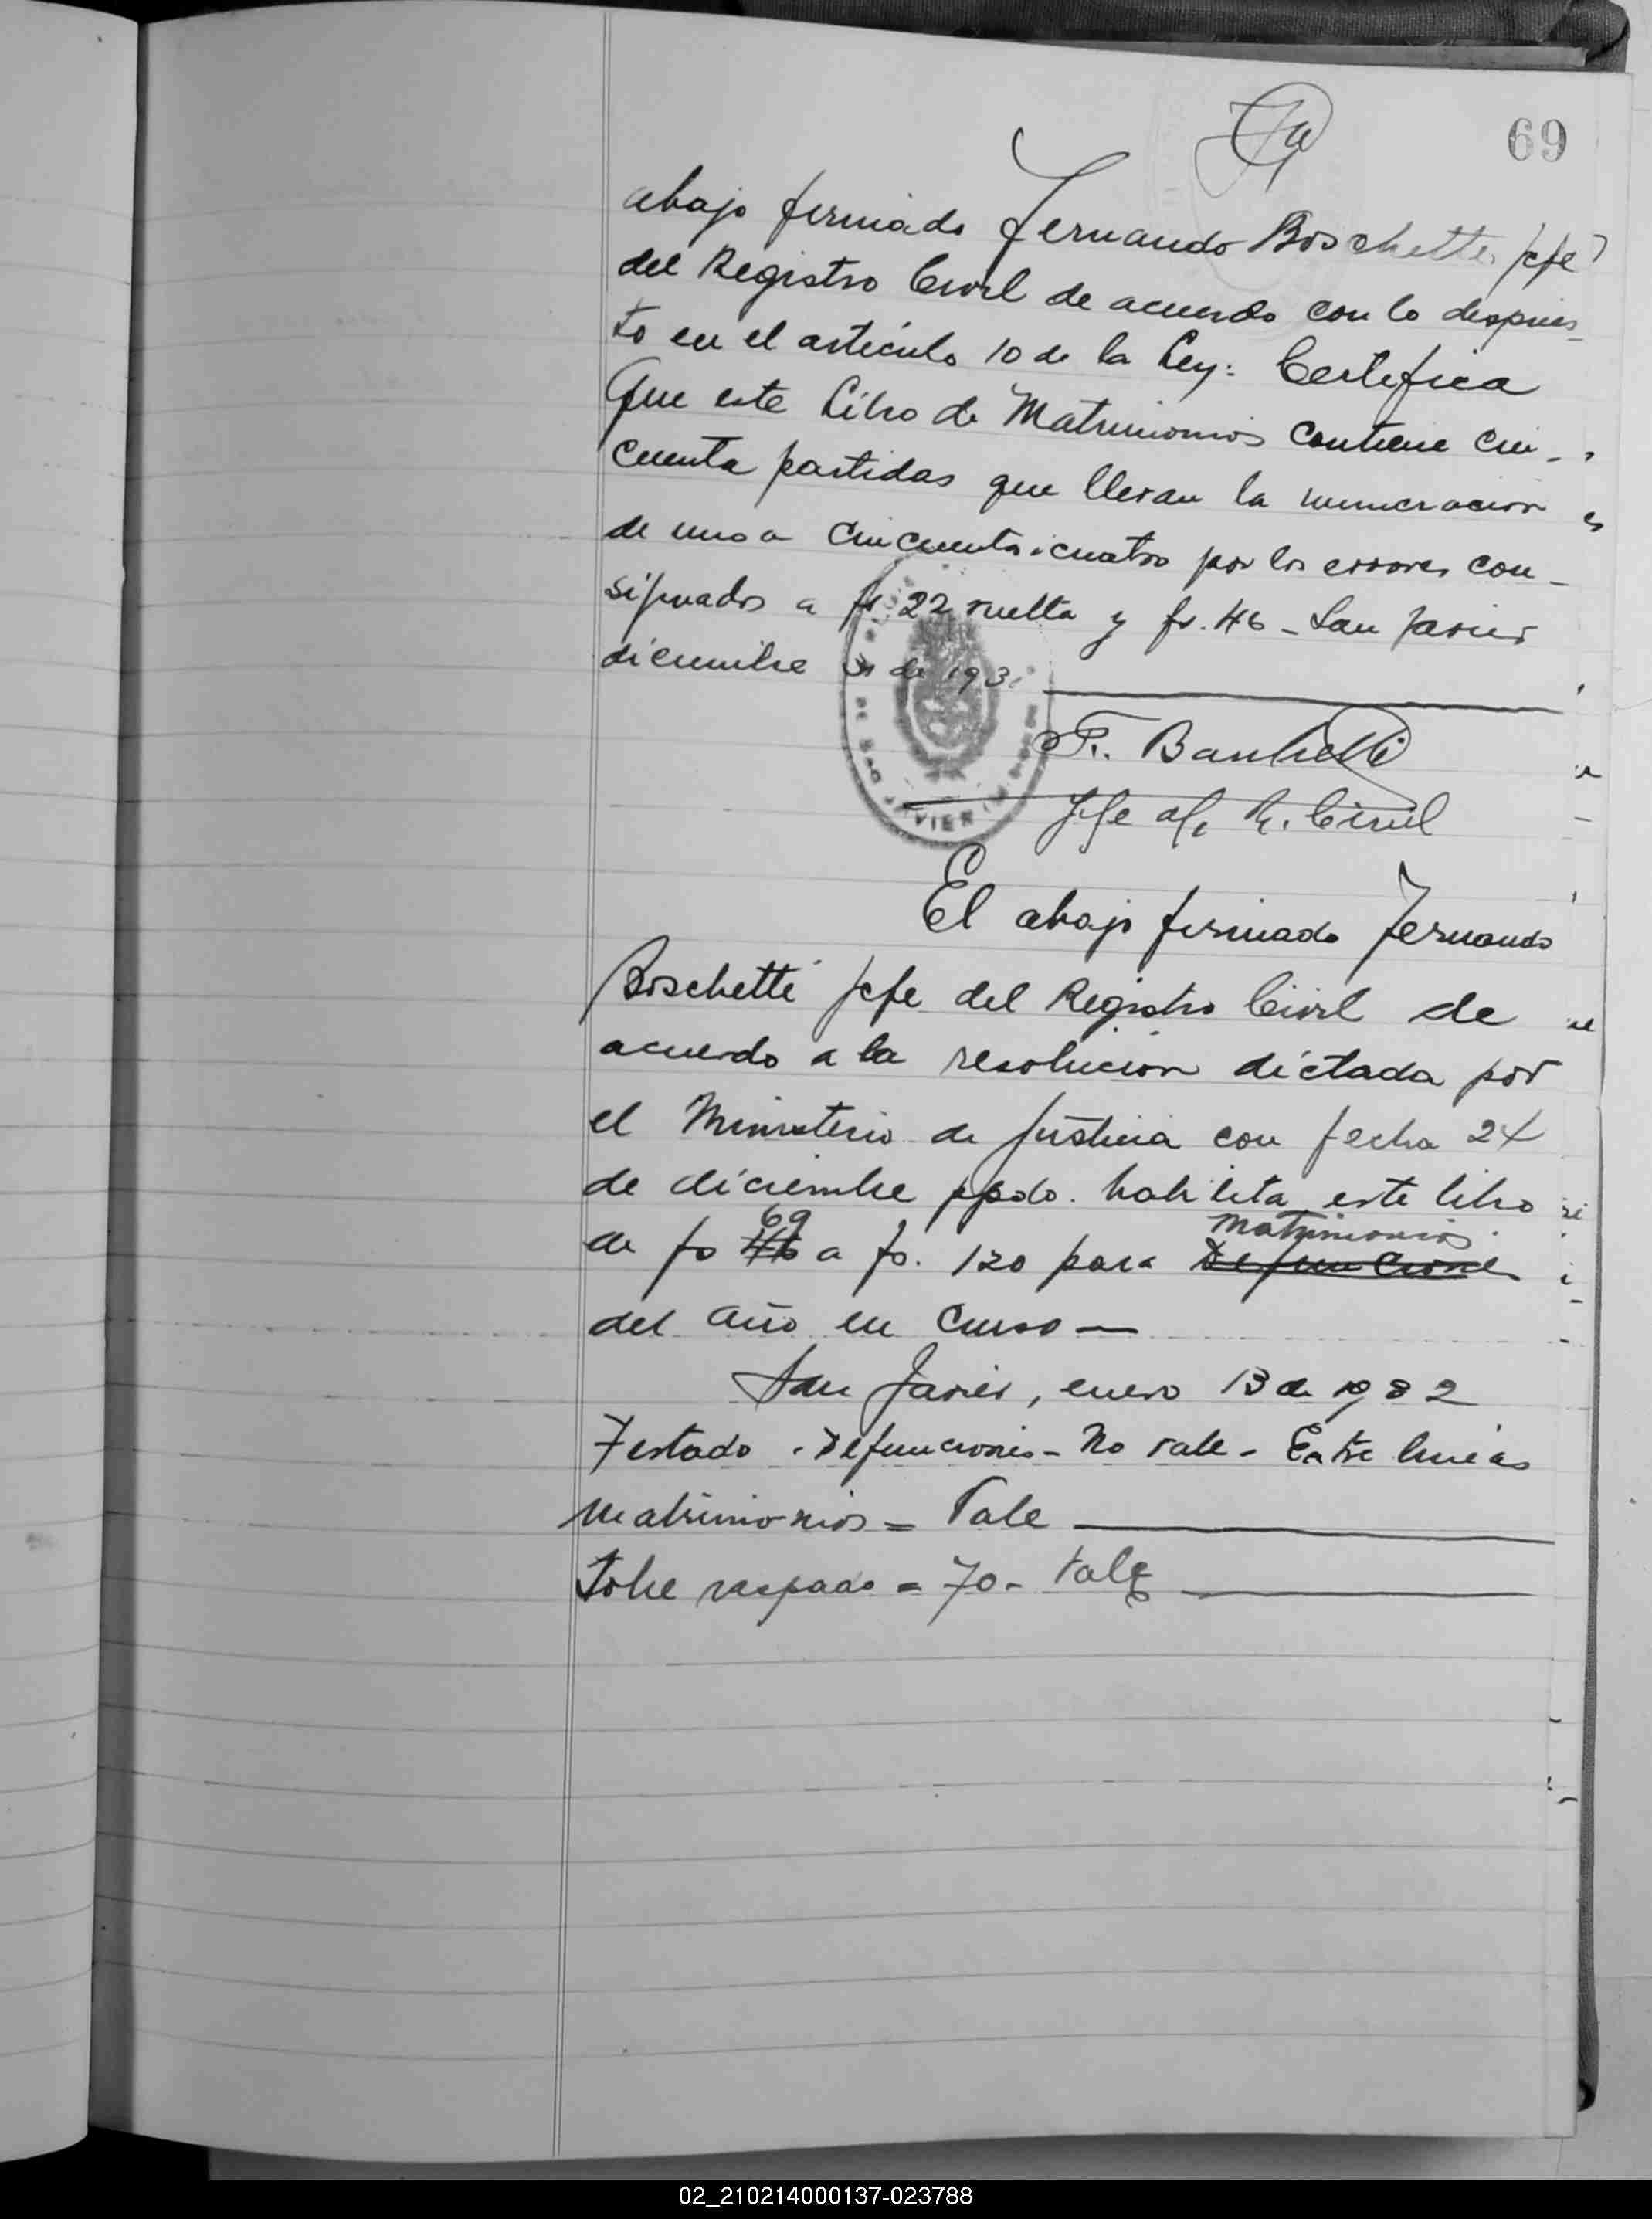 69
abajo firmado Fernando Boschetti jefe
del Registro Civil de acuerdo con lo dispues_
to en el artículo 10 de la Ley: Certifica
Que este Libro de Matrimonios contiene cin_
cuenta partidas que llevan la numeracion
de uno a cincuenta i cuatro por los errores con_
signados a fs 22 vuelta y fs. 46 _ San Javier
diciembre 31 de 193
F. Boschetti
Jefe R. Civil
El abajo firmado Fernando
Boschetti jefe del Registro Civil de
acuerdo a la resolucion dictada por
el Ministerio de Justicia con fecha 24
de diciembre ppdo. habilita este libro
69 matrimonios
de fo a fs. 120 para Defunciones
del año en curso —
San Javier, enero 13 de 1932
Testado . Defunciones - No vale - Entre lineas
matrimonios = Vale
Sobre raspado = 70 - Vale
02_210214000137-023788